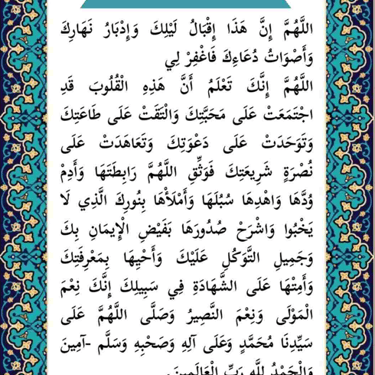 اللَّهُمَّ إِنَّ هَذَا إِقْبَالُ لَيْلِكَ وَإِدْبَارُ نَهَارِكَ
وَأَصْوَاتُ دُعَاءِكَ فَاغْفِرْ لِي
اللَّهُمَّ إِنَّكَ تَعْلَمُ أَنَّ هَذِهِ الْقُلُوبَ قَدِ
اجْتَمَعَتْ عَلَى مَحَبَّتِكَ وَالْتَقَتْ عَلَى طَاعَتِكَ
وَتَوَحَدَتْ عَلَى دَعْوَتِكَ وَتَعَاهَدَتْ عَلَى
نُصْرَةِ شَرِيعَتِكَ فَوَثِّقِ اللَّهُمَّ رَابِطَتَهَا وَأَدِمْ
وُدَّهَا وَاهْدِهَا سُبُلَهَا وَأَمْلَأْهَا بِنُورِكَ الَّذِي لَا
يَخْبُوا وَاشْرَحْ صُدُورَهَا بِفَيْضِ الْإِيمَانِ بِكَ
وَجَمِيلِ التَّوَكُّلِ عَلَيْكَ وَأَحْيِهَا بِمَعْرِفَتِكَ
وَأَمِتْهَا عَلَى الشَّهَادَةِ فِي سَبِيلِكَ إِنَّكَ نِعْمَ
الْمَوْلَى وَنِعْمَ النَّصِيرُ وَصَلَّى اللَّهُمَّ عَلَى
سَيِّدِنَا مُحَمَّدٍ وَعَلَى آلِهِ وَصَحْبِهِ وَسَلَّم -آمِينَ
وَالْحَمْدُ لِلَّهِ رَبِّ الْعَالَمِينَ.